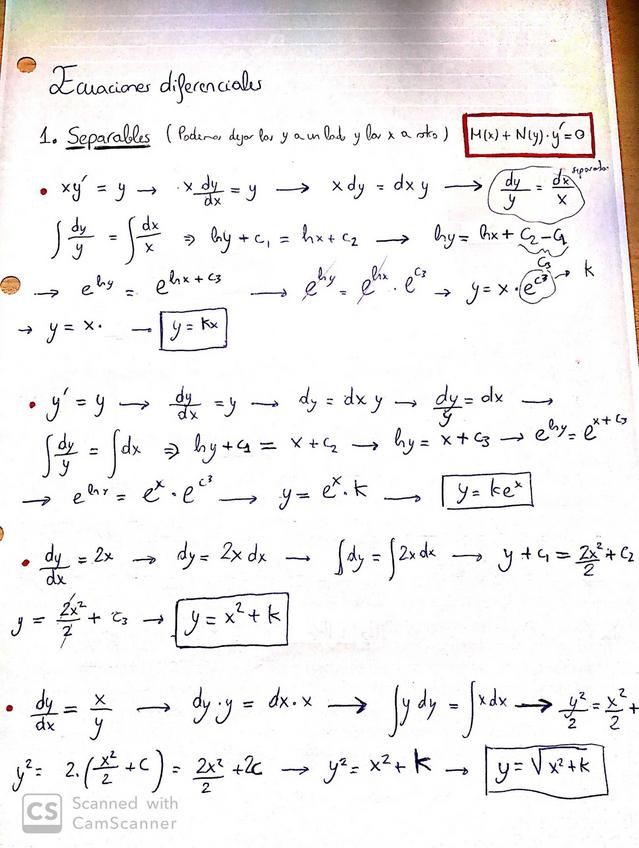 Ecuaciones diferenciales
1. Separables (Podemos dejar las y a un lado y las x a otro) M(x) + N(y)·y' = 0
• xy' = y → x dy/dx = y → x dy = dx y → dy/y = dx/x separadas
∫ dy/y = ∫ dx/x ⇒ ln y + C₁ = ln x + C₂ → ln y = ln x + C₂ - C₁
C₃
→ e^(ln y) = e^(ln x + C₃) → e^(ln y) = e^(ln x) · e^(C₃) → y = x · e^(C₃) → k
→ y = x · → y = kx
• y' = y → dy/dx = y → dy = dx y → dy/y = dx →
∫ dy/y = ∫ dx ⇒ ln y + C₁ = x + C₂ → ln y = x + C₃ → e^(ln y) = e^(x + C₃)
→ e^(ln y) = e^x · e^(C₃) → y = e^x · k → y = ke^x
• dy/dx = 2x → dy = 2x dx → ∫ dy = ∫ 2x dx → y + C₁ = 2x²/2 + C₂
y = 2x²/2 + C₃ → y = x² + k
• dy/dx = x/y → dy · y = dx · x → ∫ y dy = ∫ x dx → y²/2 = x²/2 +
y² = 2·(x²/2 + C) = 2x²/2 + 2C → y² = x² + k → y = √(x² + k)
CS Scanned with
CamScanner